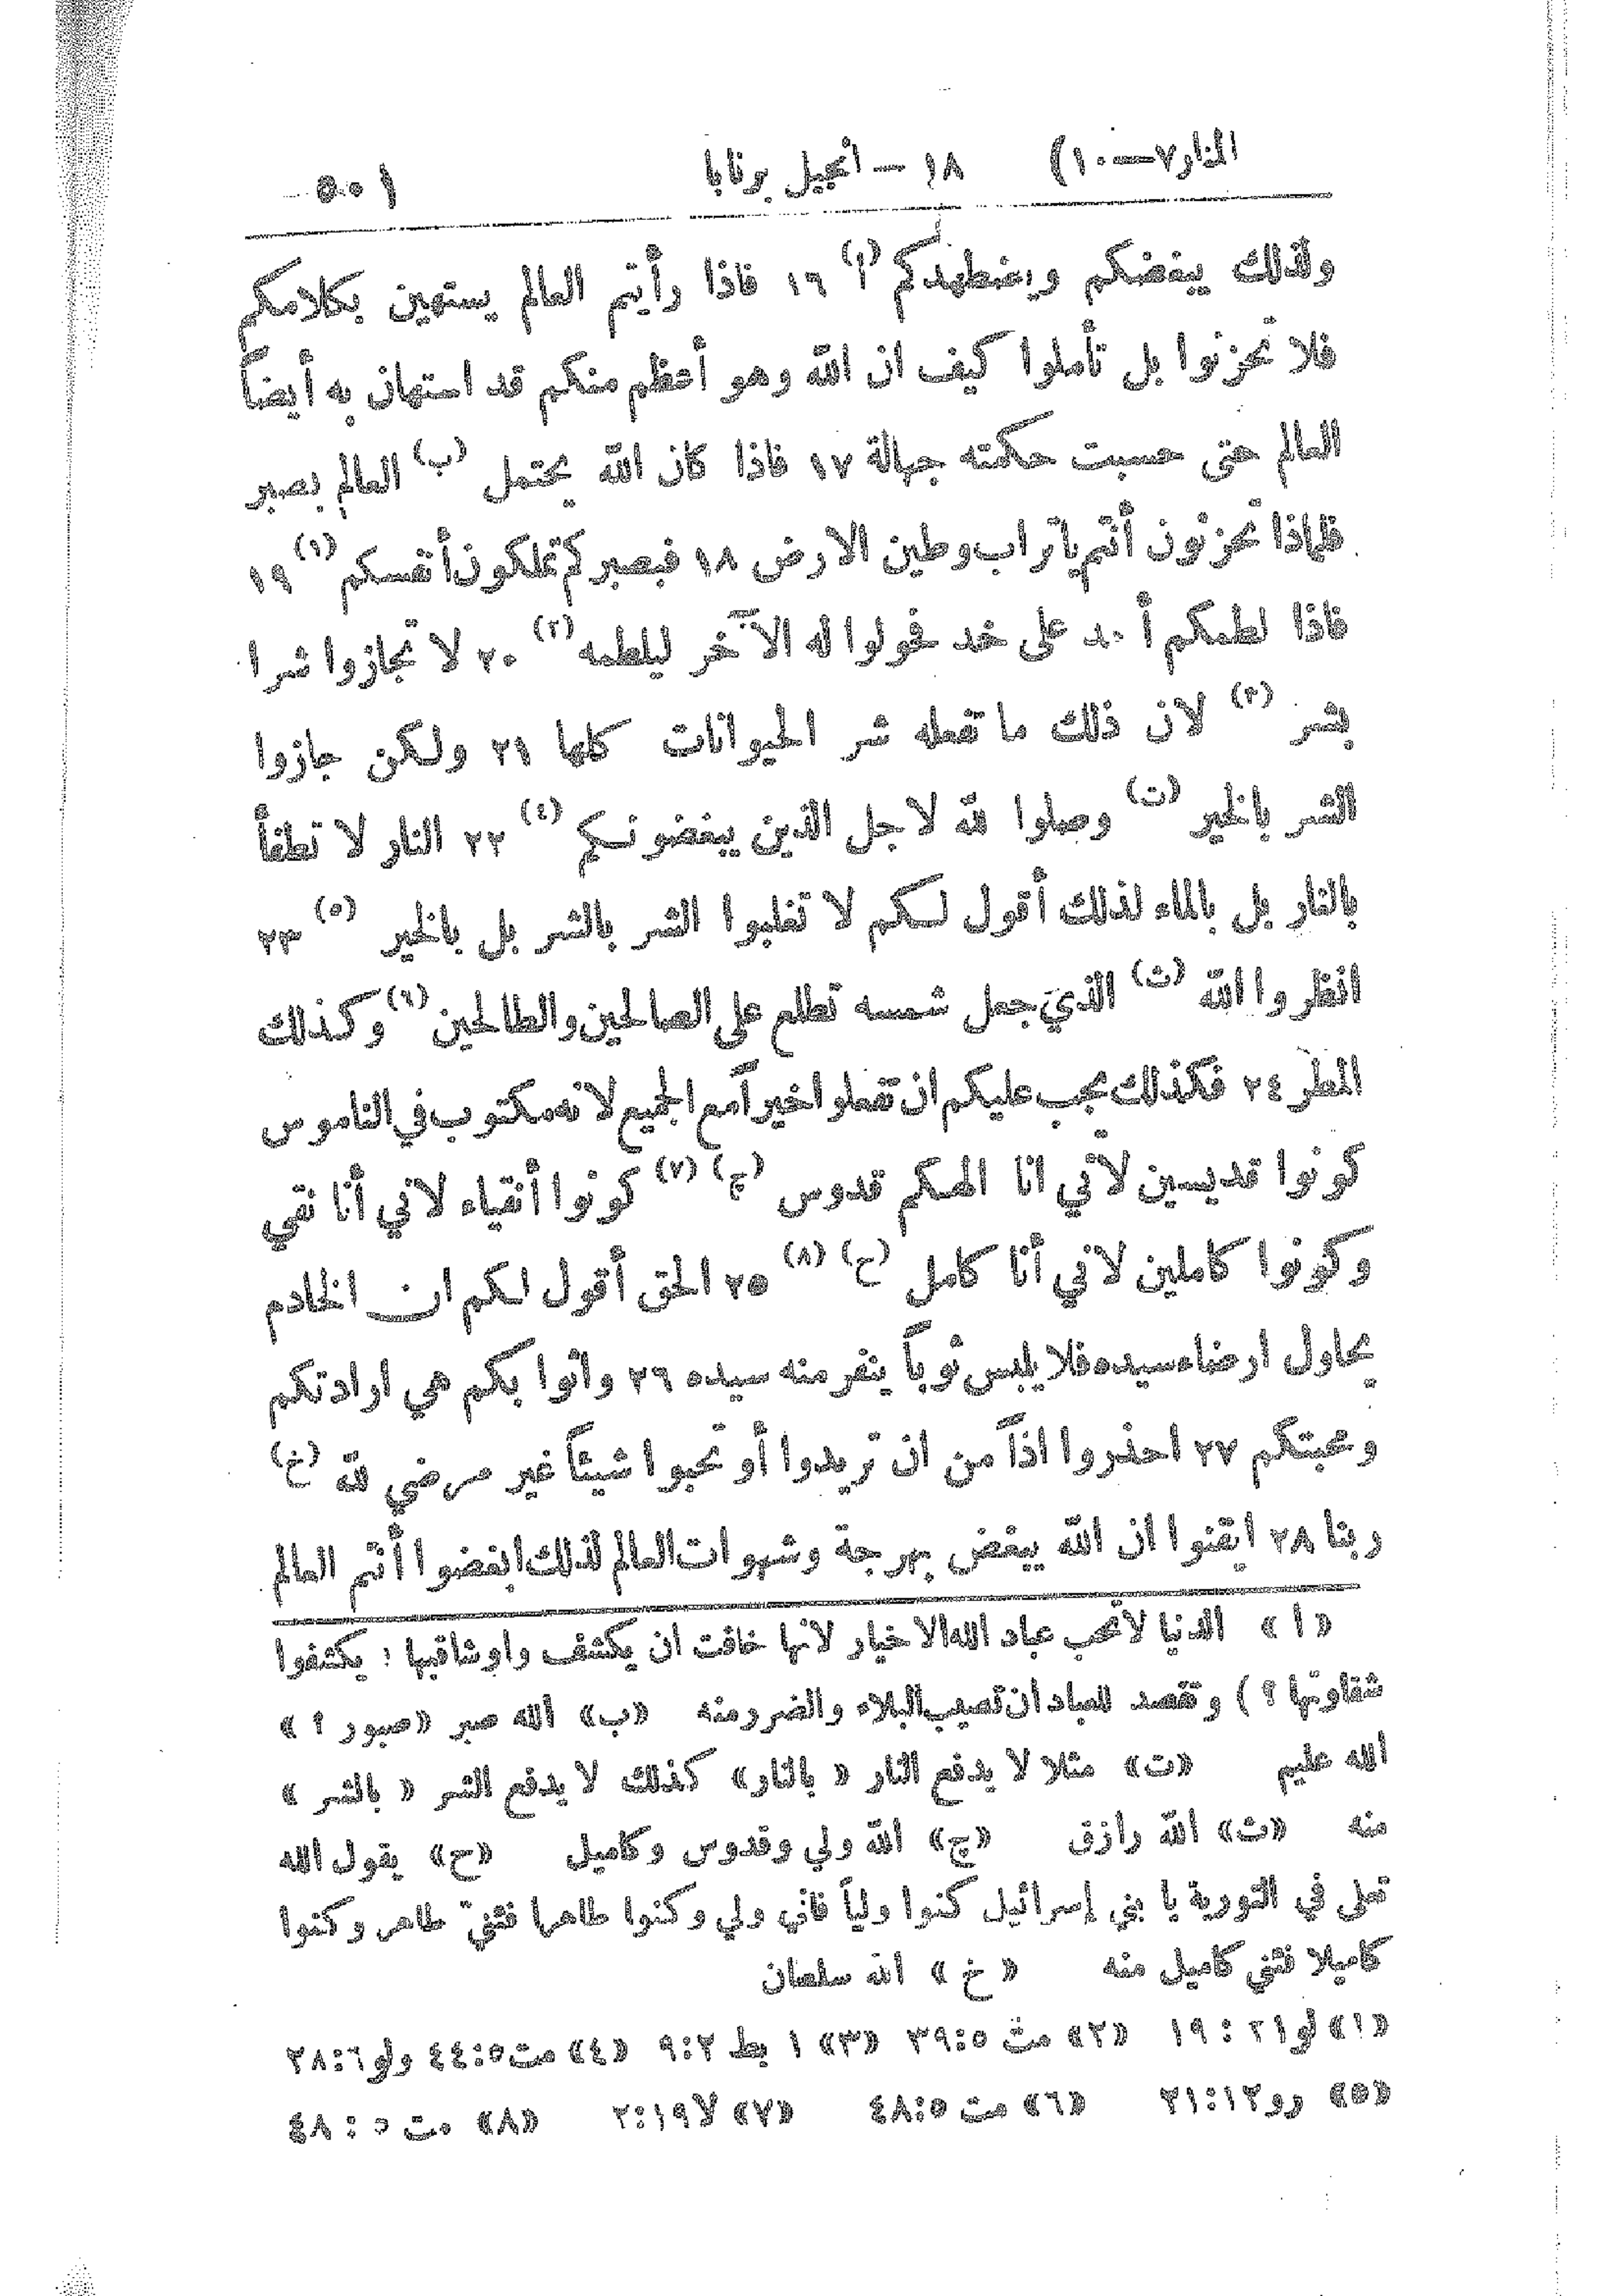 (المنار٧—١٠) ١٨ — انجيل برنابا ٥٠١
ولذلك يبغضكم ويضطهدكم (أ) ١٦ فاذا رأيتم العالم يستهين بكلامكم
فلا تحزنوا بل تأملوا كيف ان الله وهو أعظم منكم قد استهان به أيضاً
العالم حتى حسبت حكمته جهالة ١٧ فاذا كان الله يحتمل (ب) العالم بصبر
فلماذا تحزنون أنتم ياتراب وطين الارض ١٨ فبصبركم تملكون أنفسكم (١) ١٩
فاذا لطمكم أحد على خد فحولوا له الآخر ليلطمه (٢) ٢٠ لا تجازوا شرا
بشر (٣) لان ذلك ما تفعله شر الحيوانات كلها ٢١ ولكن جازوا
الشر بالخير (ت) وصلوا لله لاجل الذين يبغضونكم (٤) ٢٢ النار لا تطفأ
بالنار بل بالماء لذلك أقول لكم لا تغلبوا الشر بالشر بل بالخير (٥) ٢٣
انظروا الله (ث) الذي جعل شمسه تطلع على الصالحين والطالحين (٦) وكذلك
المطر ٢٤ فكذلك يجب عليكم ان تفعلوا خيراً مع الجميع لانه مكتوب في الناموس
كونوا قديسين لأني انا الهكم قدوس (ج) (٧) كونوا أنقياء لاني أنا نقي
وكونوا كاملين لاني أنا كامل (ح) (٨) ٢٥ الحق أقول لكم ان الخادم
يحاول ارضاء سيده فلا يلبس ثوباً ينفر منه سيده ٢٦ واثوابكم هي ارادتكم
ومحبتكم ٢٧ احذروا اذاً من ان تريدوا أو تحبوا شيئاً غير مرضي لله (خ)
ربنا ٢٨ ايقنوا ان الله يبغض بهرجة وشهوات العالم لذلك ابغضوا أنتم العالم
«ا» الدنيا لاتحب عباد الله الاخيار لانها خافت ان يكشف واوشاقيها ؛ يكشفوا
شقاوتها ؟ ) وتقصد للعباد ان تصيب البلاء والضرر منه «ب» الله صبر «صبور ؟ »
الله عليم «ت» مثلا لا يدفع النار « بالنار» كذلك لا يدفع الشر « بالشر »
منه «ث» الله رازق «ج» الله ولي وقدوس وكاميل «ح» يقول الله
تعلى في التورية يا بني إسرائيل كنوا ولياً فاني ولي وكنوا طاهرا فئني طاهر وكنوا
كاميلا فئني كاميل منه « خ » الله سلطان
«١» لو٢١ : ١٩ «٢» مت ٥:٣٩ «٣» ١ بط ٢:٩ «٤» مت٥:٤٤ ولو٦:٢٨
«٥» رو١٢:٢١ «٦» مت ٥:٤٨ «٧» لا١٩:٢ «٨» مت ٥ : ٤٨